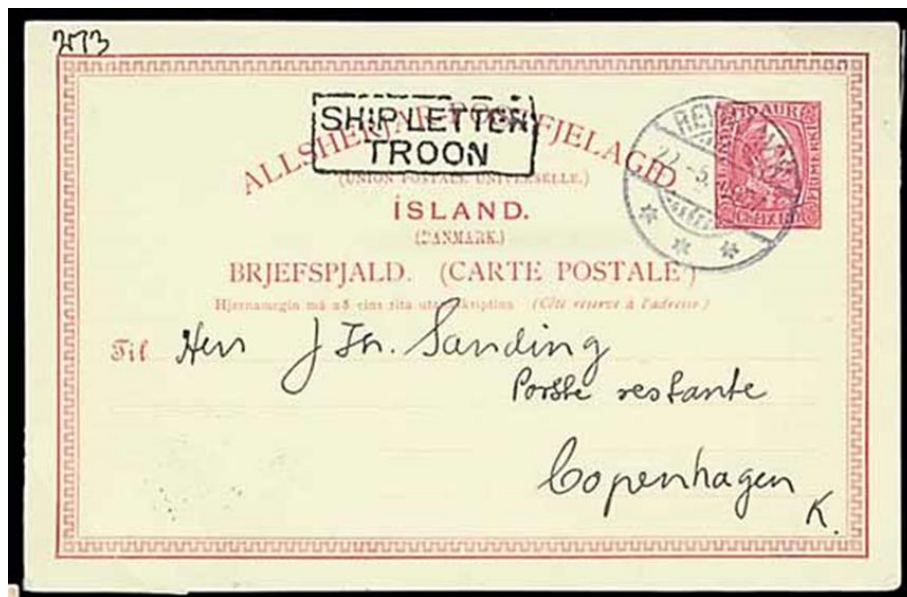 2173
SHIP LETTER
TROON
ALLSHERJAR-PÓSTFJELAGIÐ
(UNION POSTALE UNIVERSELLE.)
ÍSLAND.
(DANMARK.)
BRJEFSPJALD. (CARTE POSTALE)
Hjernamegin má að eins rita utanáskriptina (Côté réservé à l'adresse.)
Til Herr J Fr. Sanding
Poste restante
Copenhagen
K.